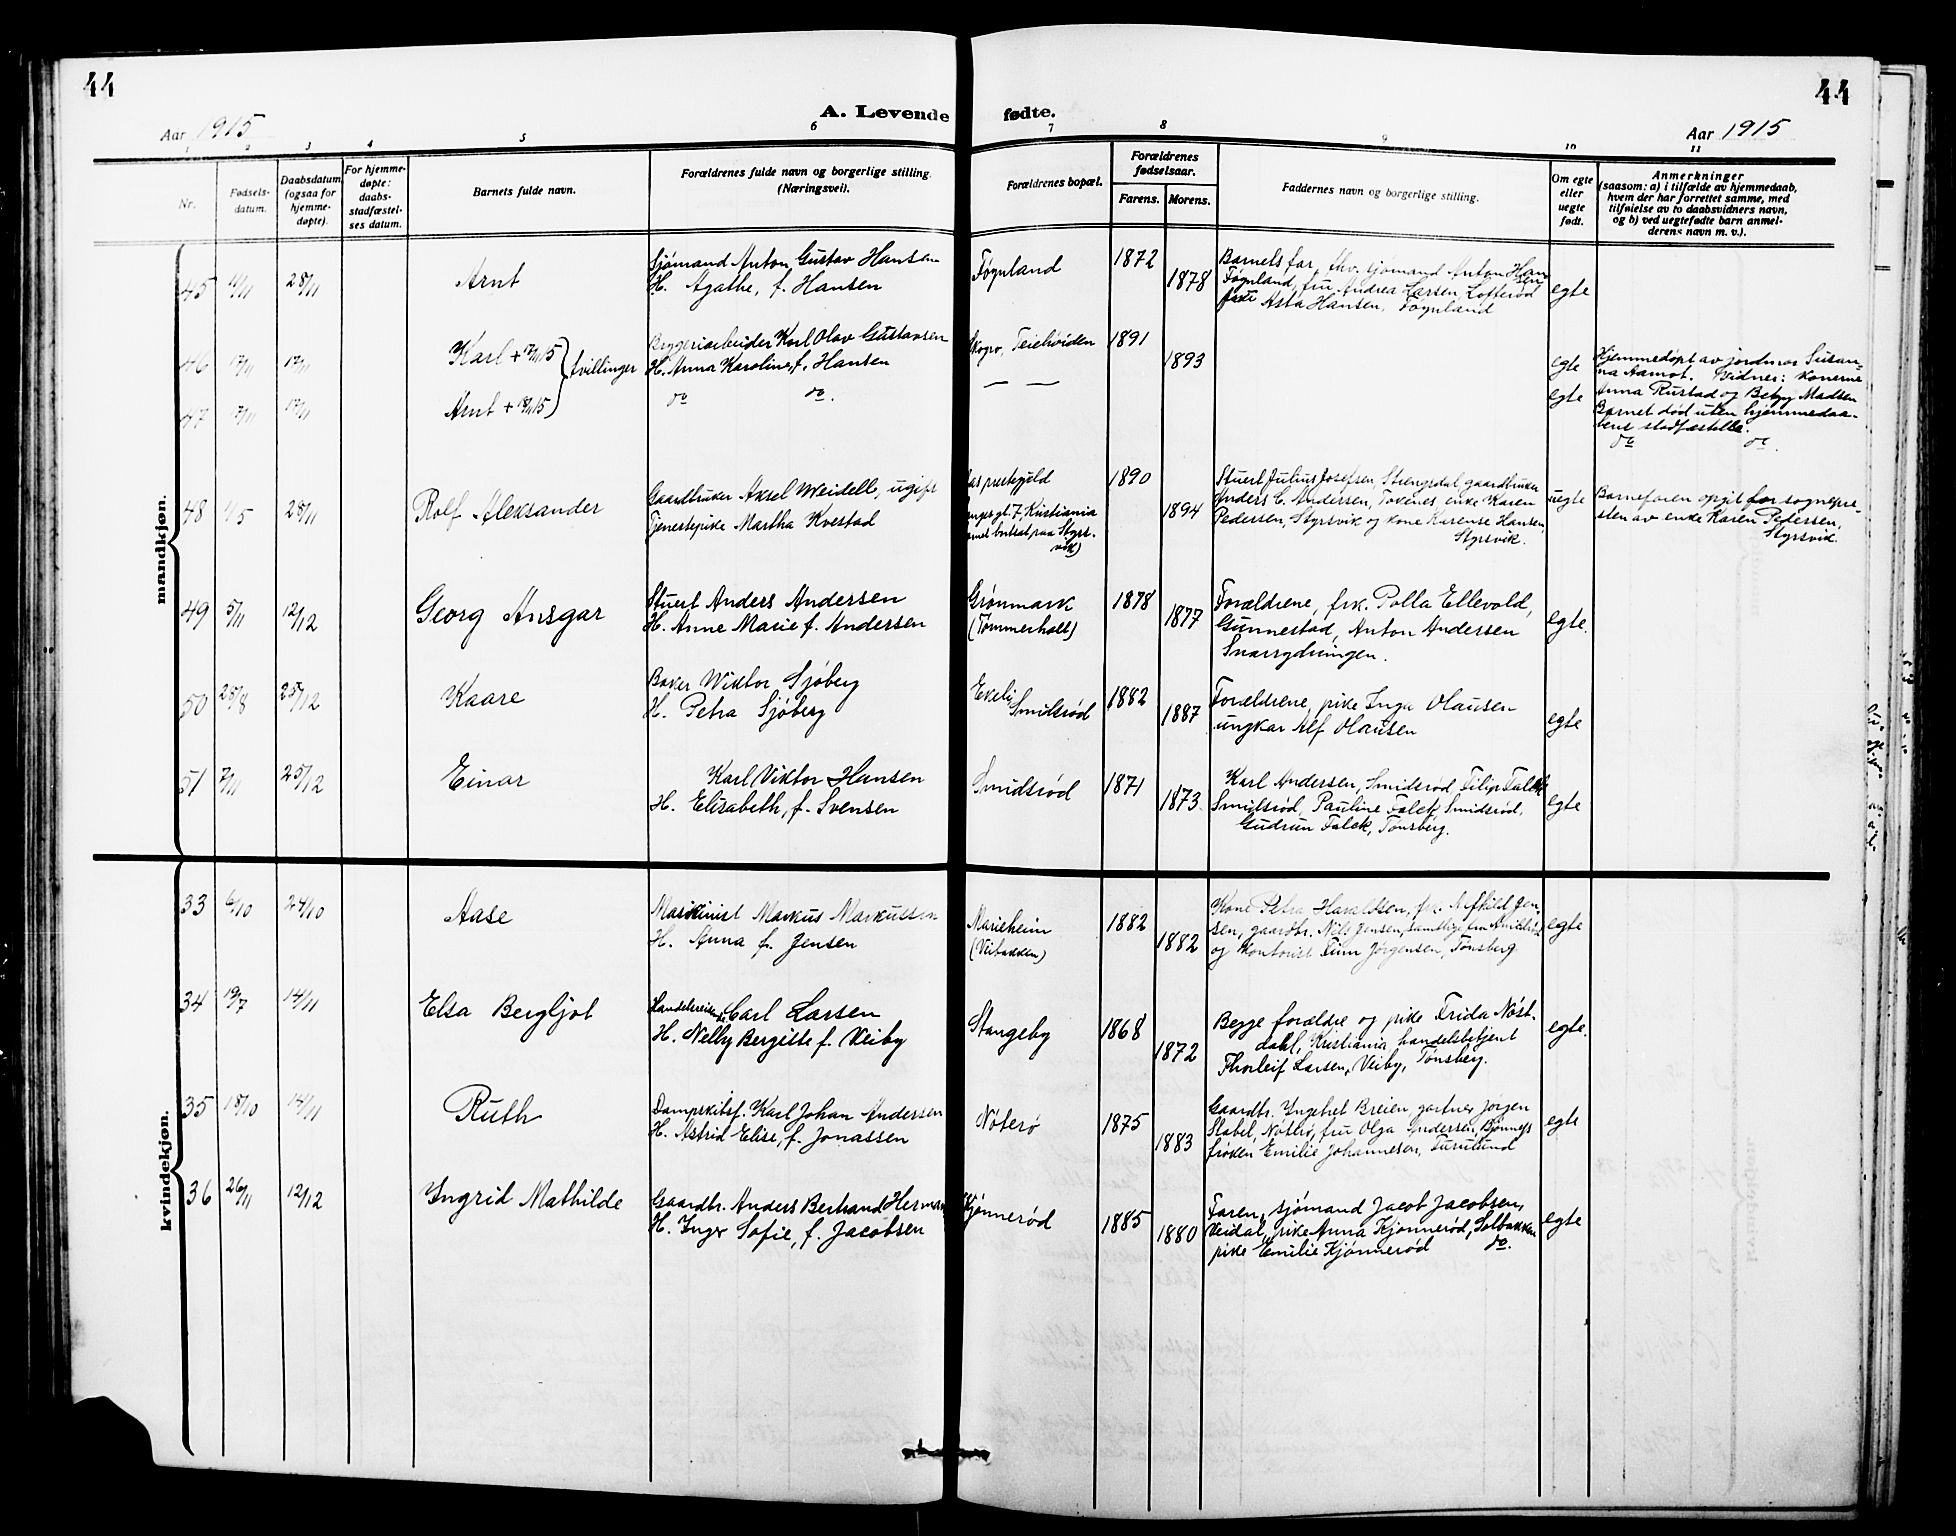 44
44
A. Levende fødte.
Aar 1915
Aar 1915
1 2 3 4 5 6 7 8 9 10 11
Nr.
Fødsels-
datum.
Daabsdatum
(ogsaa for
hjemme-
døpte).
For hjemme-
døpte:
daabs-
stadfæstel-
ses datum.
Barnets fulde navn.
Forældrenes fulde navn og borgerlige stilling
(Næringsvei).
Forældrenes bopæl.
Forældrenes
fødselsaar.
Farens. Morens.
Faddernes navn og borgerlige stilling.
Om egte
eller
uegte
født.
Anmerkninger
(saasom: a) i tilfælde av hjemmedaab,
hvem der har forrettet samme, med
tilføielse av to daabsvidners navn,
og b) ved uegtefødte barn anmel-
derens navn m. v.).
mandkjøn.
45 11/11 28/11 Arnt
Sjømand Anton Gustav Hansen
H. Agathe, f. Hansen
Føynland 1872 1878
Barnets far, fhv. sjømand Anton Hansen
Føynland, fru Andrea Larsen, Lofterød
frk. Asta Hansen, Føynland
egte
46 17/11 17/11 Karl + 17/11 15 } tvillinger
Bryggeriarbeider Karl Olav Gustavsen
H. Anna Karoline, f. Hansen
Skogro, Teiehøiden 1891 1893
egte
Hjemmedøpt av jordmor Susan-
na Aamot. Vidner: Konerne
Anna Rustad og Betzy Madsen
Barnet død uten hjemmedaa-
bens stadfæstelse.
47 17/11 17/11 Arnt + 18/11 15
do do.
— —
egte
do do.
48 1/5 28/11 Rolf Aleksander
Gaardbruker Aksel Weidell, ugift
Tjenestepike Martha Kvestad
prestegjeld
gt. 7, Kristiania
bortsat paa Styrs-
vik)
1890 1894
Stuert Julius Josefsen, Strengsdal, gaardbruker
Anders C. Andersen, Tokenes, enke Karen
Pedersen, Styrsvik og kone Karense Hansen,
Styrsvik.
uegte
Barnefaren opgit for sognepre-
sten av enke Karen Pedersen,
Styrsvik.
49 5/11 12/12 Georg Ansgar
Stuert Anders Andersen
H. Anne Marie f. Andersen
Grønmark
(Tømmerholt)
1878 1877
Forældrene, frk. Polla Ellevold,
Gunnestad, Anton Andersen
Snarrydningen.
egte.
50 25/8 25/12 Kaare
Baker Wiktor Sjøberg
H. Petra Sjøberg
Ekelie
Smidsrød
1882 1887
Forældrene, pike Inga Olausen
ungkar Alf Olausen
egte
51 7/11 25/12 Einar
Karl Viktor Hansen
H. Elisabeth, f. Svensen
Smidsrød 1871 1873
Karl Andersen, Smidsrød, Filip Falck
Smidsrød, Pauline Falck, Smidsrød,
Gudrun Falck, Tønsberg.
egte
kvindekjøn.
33 6/10 24/10 Aase
Maskinist Markus Markussen
H. Anna f. Jensen
Marieheim
(Veibakken)
1882 1882
Kone Petra Haraldsen, frk. Alfhild Jen-
sen, gaardbr. Nils Jensen, samtlige fra
og kontorist Finn Jørgensen, Tønsberg
egte
34 19/7 14/11 Elsa Bergljot
Handelsreisende Carl Larsen
H. Nelly Bergitte f. Veiby
Stangeby 1868 1872
Begge forældre og pike Frida Nøst-
dahl, Kristiania, handelsbetjent
Thorleif Larsen, Veiby, Tønsberg.
egte.
35 18/10 14/11 Ruth
Dampskibsf. Karl Johan Andersen
H. Astrid Elise, f. Jonassen
Nøterø 1875 1883
Gaardbr. Ingebret Breien, gartner Jørgen
Stabel, Nøtterø, fru Olga Andersen, Bjønnes
frøken Emilie Johannesen, Furulund
egte
36 26/11 12/12 Ingrid Mathilde
Gaardbr. Anders Bertrand Herman
H. Inga Sofie, f. Jacobsen
Kjønnerød 1885 1880
Faren, sjømand Jacob Jacobsen,
Veidal, pike Anna Kjønnerød, Solbakken
pike Emilie Kjønnerød do.
egte